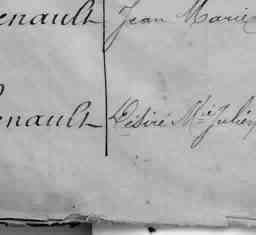 enault Jean Marie
enault Désiré Mie Julien